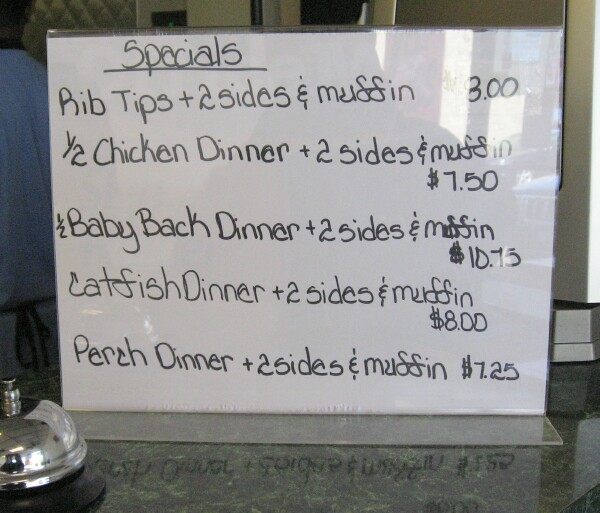 Specials
Rib Tips + 2 sides & muffin 8.00
1/2 Chicken Dinner + 2 sides & muffin
$7.50
1/2 Baby Back Dinner + 2 sides & muffin
$10.75
Catfish Dinner + 2 sides & muffin
$8.00
Perch Dinner + 2 sides & muffin $7.25